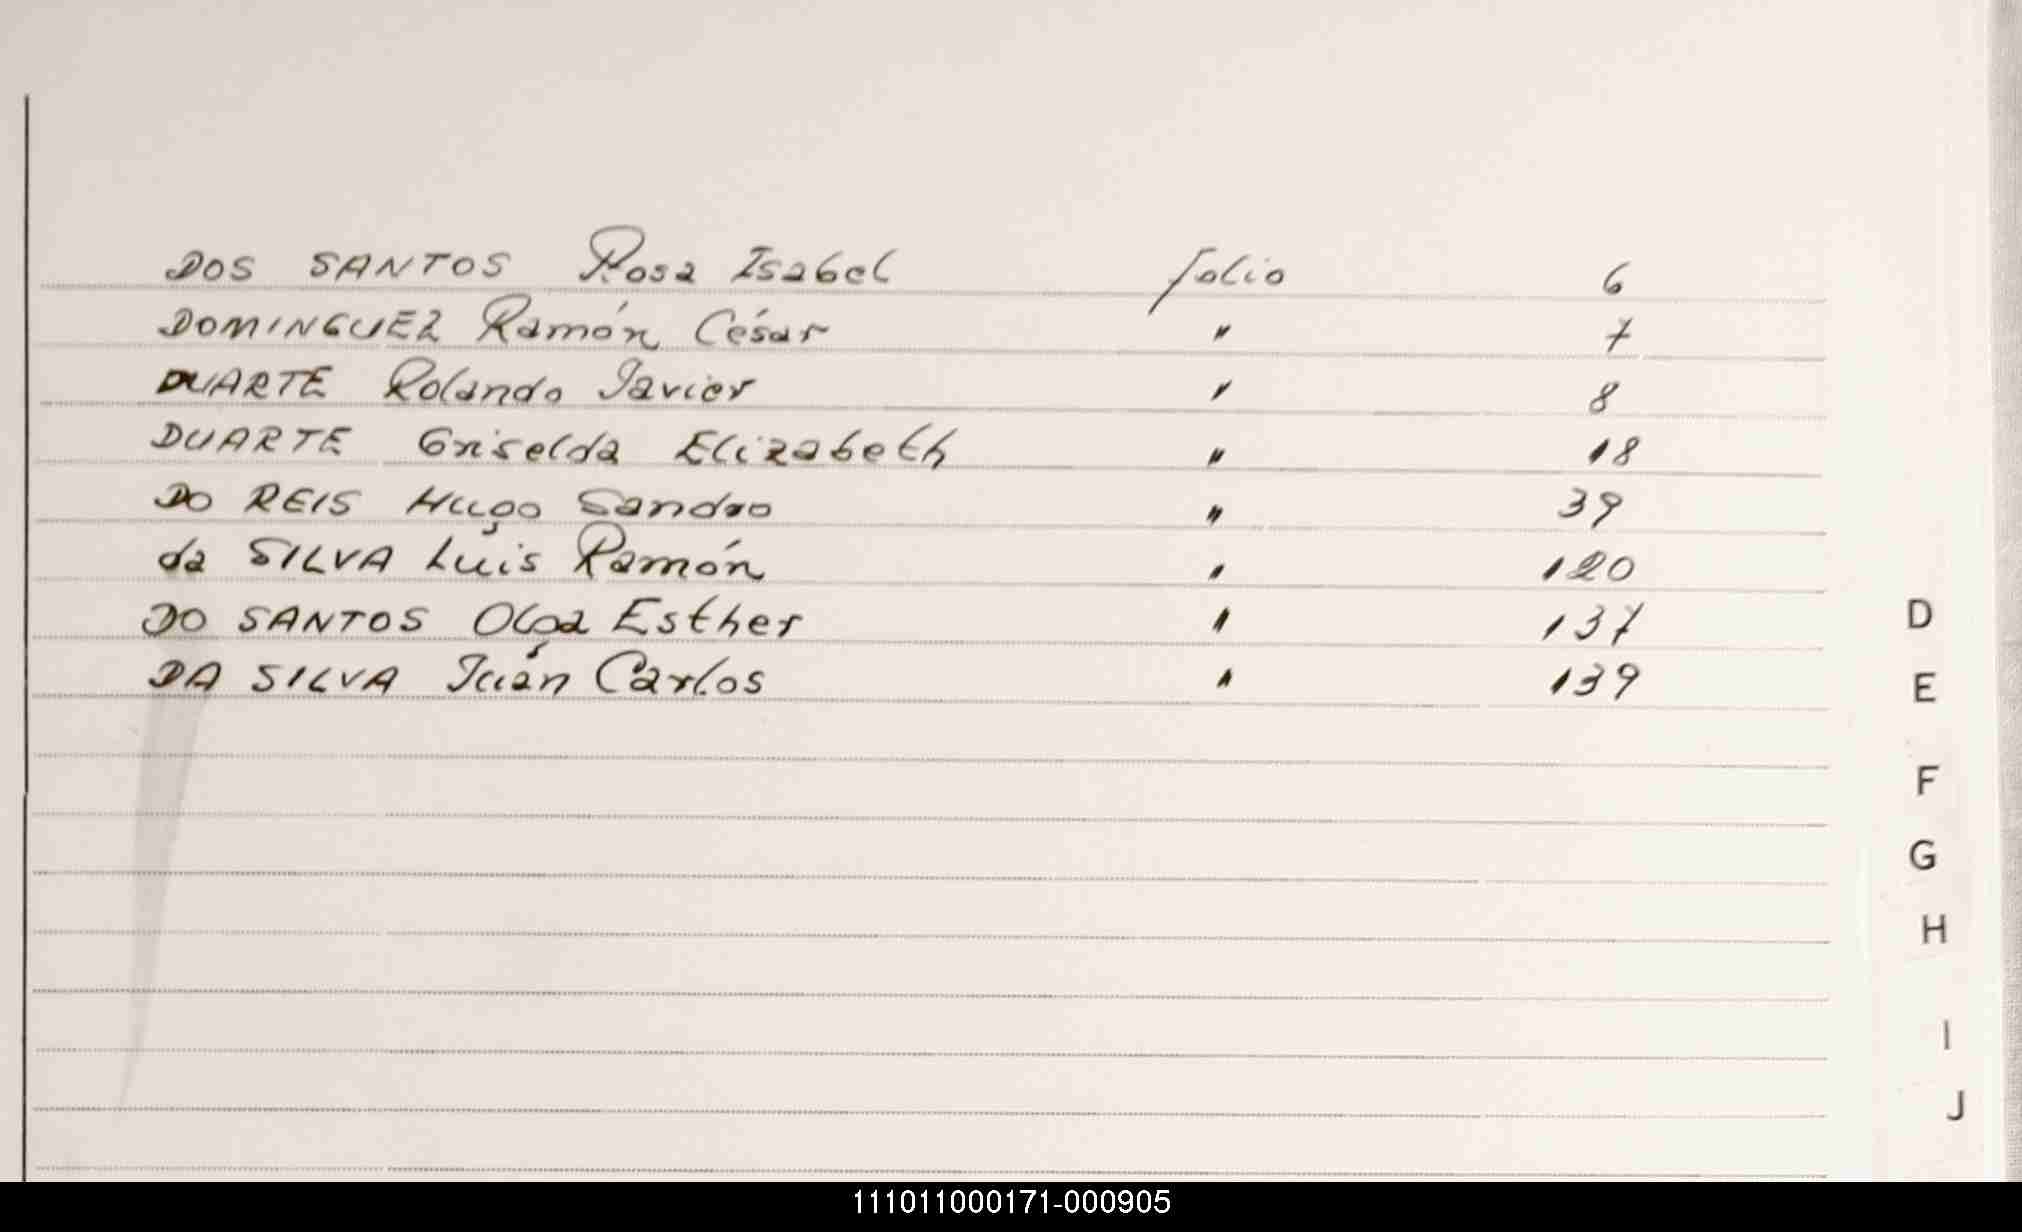 DOS SANTOS Rosa Isabel folio 6
DOMINGUEZ Ramón César " 7
DUARTE Rolando Javier " 8
DUARTE Griselda Elizabeth " 18
DO REIS Hugo Sandro " 39
da SILVA Luis Ramón " 120
DO SANTOS Olga Esther " 137
DA SILVA Juan Carlos " 139
D
E
F
G
H
I
J
111011000171-000905